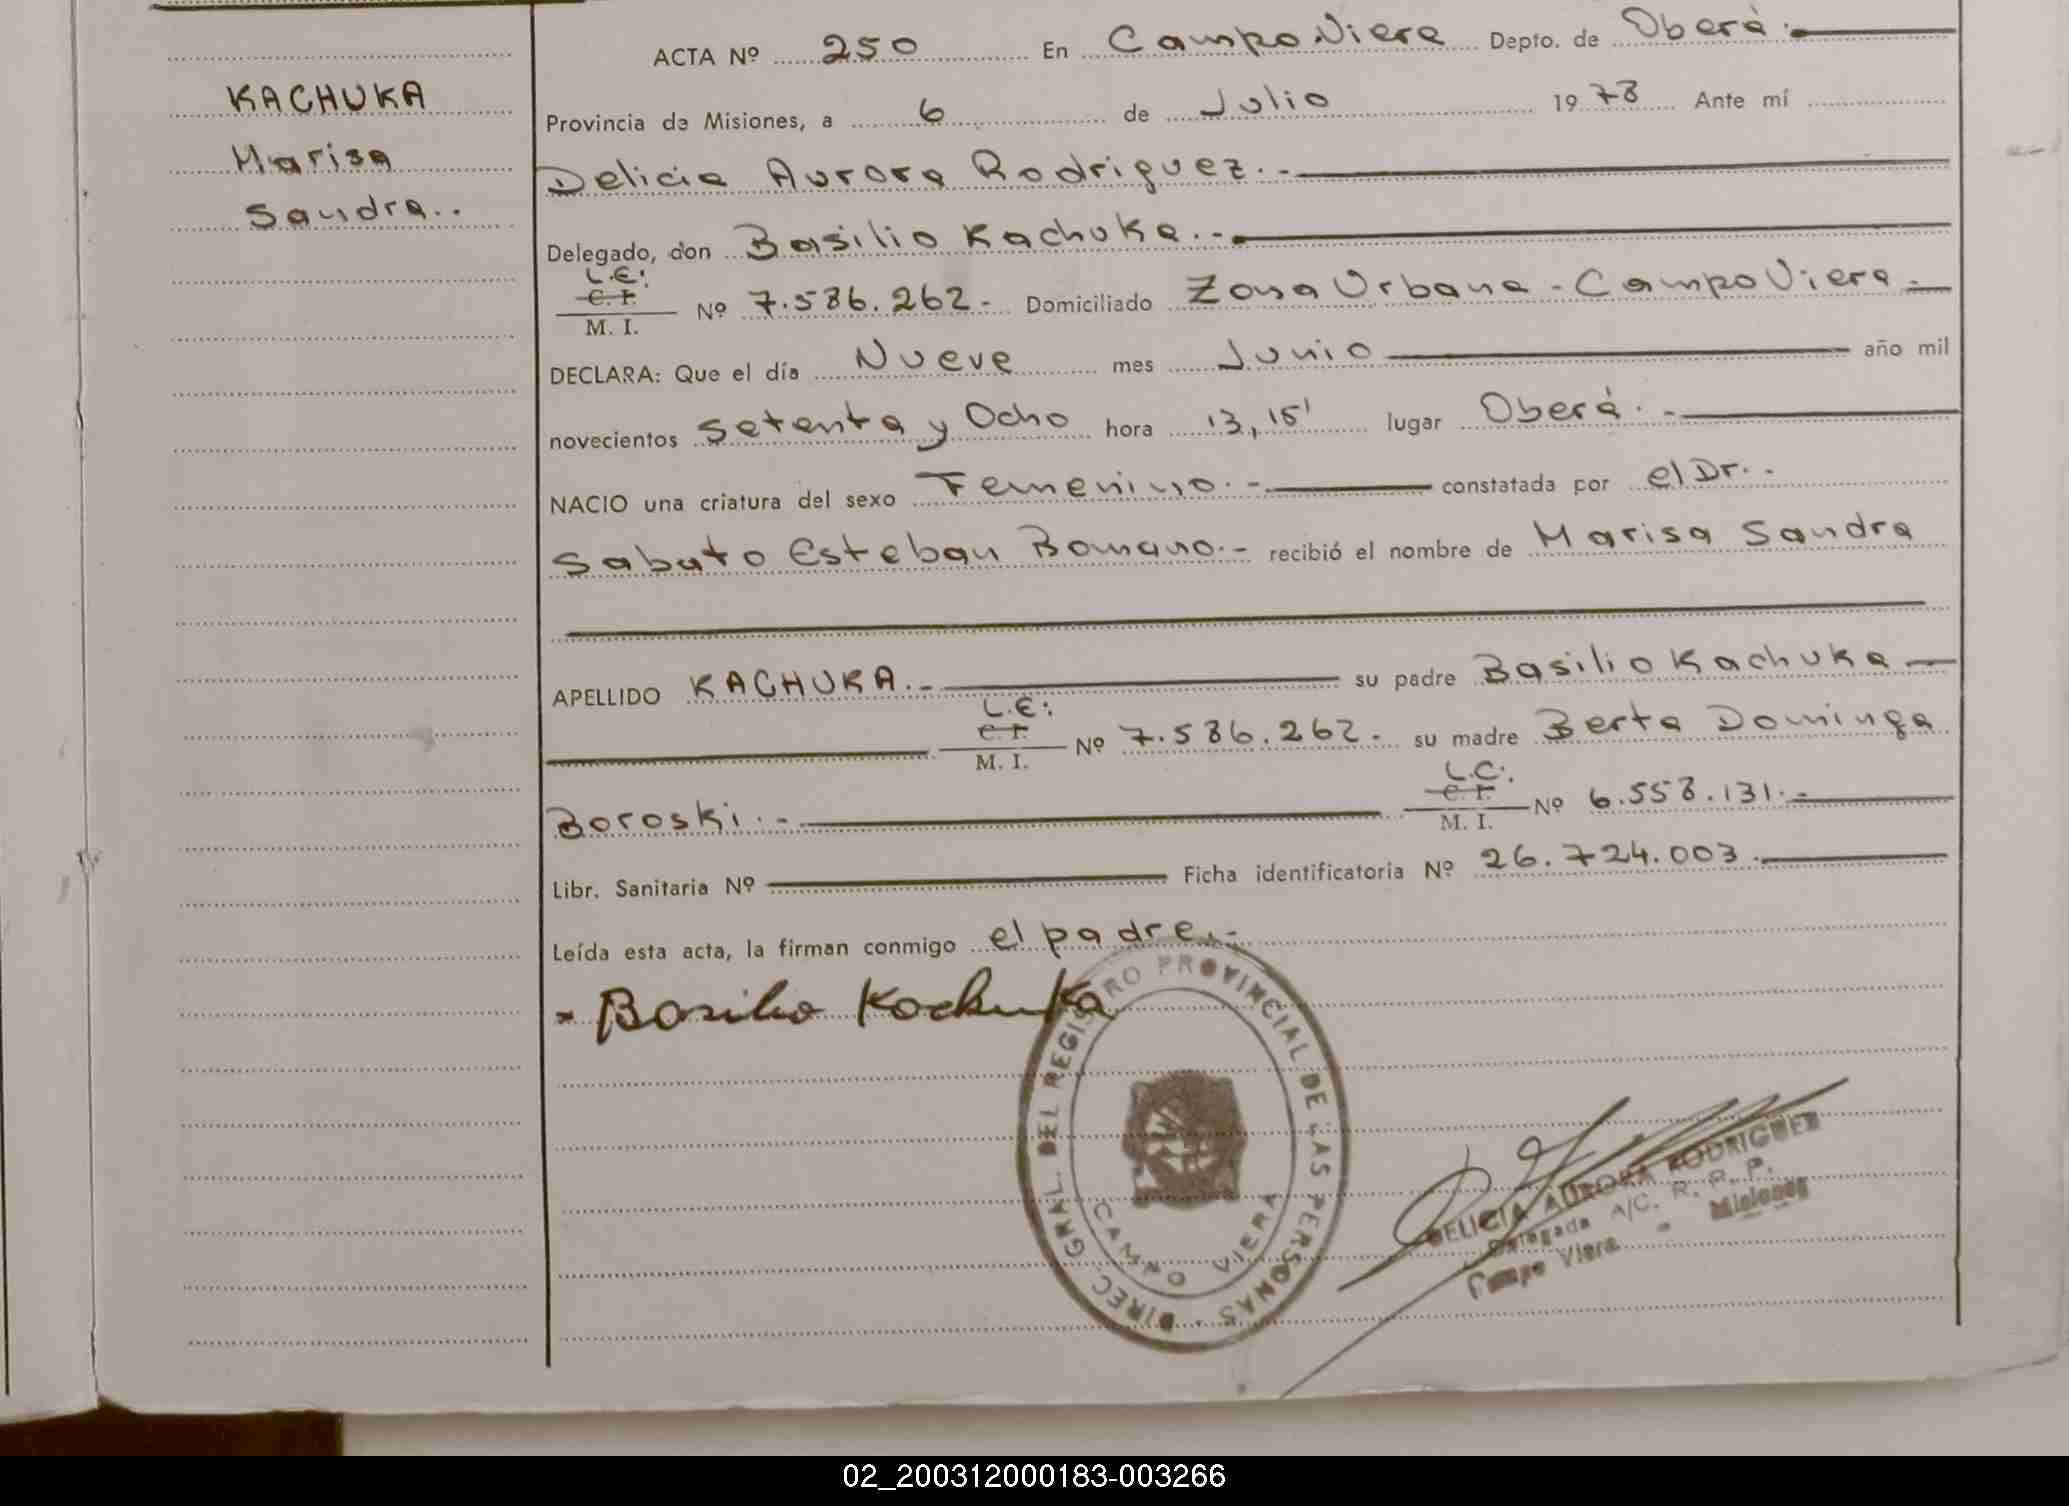 KACHUKA
Marisa
Sandra..
ACTA Nº 250 En Campo Viera Depto. de Oberá.
Provincia de Misiones, a 6 de Julio 1978 Ante mí
Delicia Aurora Rodriguez.-
Delegado, don Basilio Kachuka.-
L.E:
C. I.
M. I. Nº 7.586.262- Domiciliado Zona Urbana - Campo Viera -
DECLARA: Que el día Nueve mes Junio año mil
novecientos setenta y Ocho hora 13,15' lugar Oberá.-
NACIO una criatura del sexo Femenino.- constatada por el Dr..
Sabato Esteban Romano.- recibió el nombre de Marisa Sandra
APELLIDO KACHUKA.- su padre Basilio Kachuka
L.E:
C. I.
M. I. Nº 7.586.262. su madre Berta Dominga
L.C:
C. I.
Boroski.- M. I. Nº 6.558.131.-
Libr. Sanitaria Nº Ficha identificatoria Nº 26.724.003.
Leída esta acta, la firman conmigo el padre.-
Basilio Kachuka
DIREC. GRAL. DEL REGISTRO PROVINCIAL DE LAS PERSONAS.
CAMPO VIERA
DELICIA AURORA RODRIGUEZ
Delegada A/C. R. P. P.
Campo Viera - Misiones
02_200312000183-003266